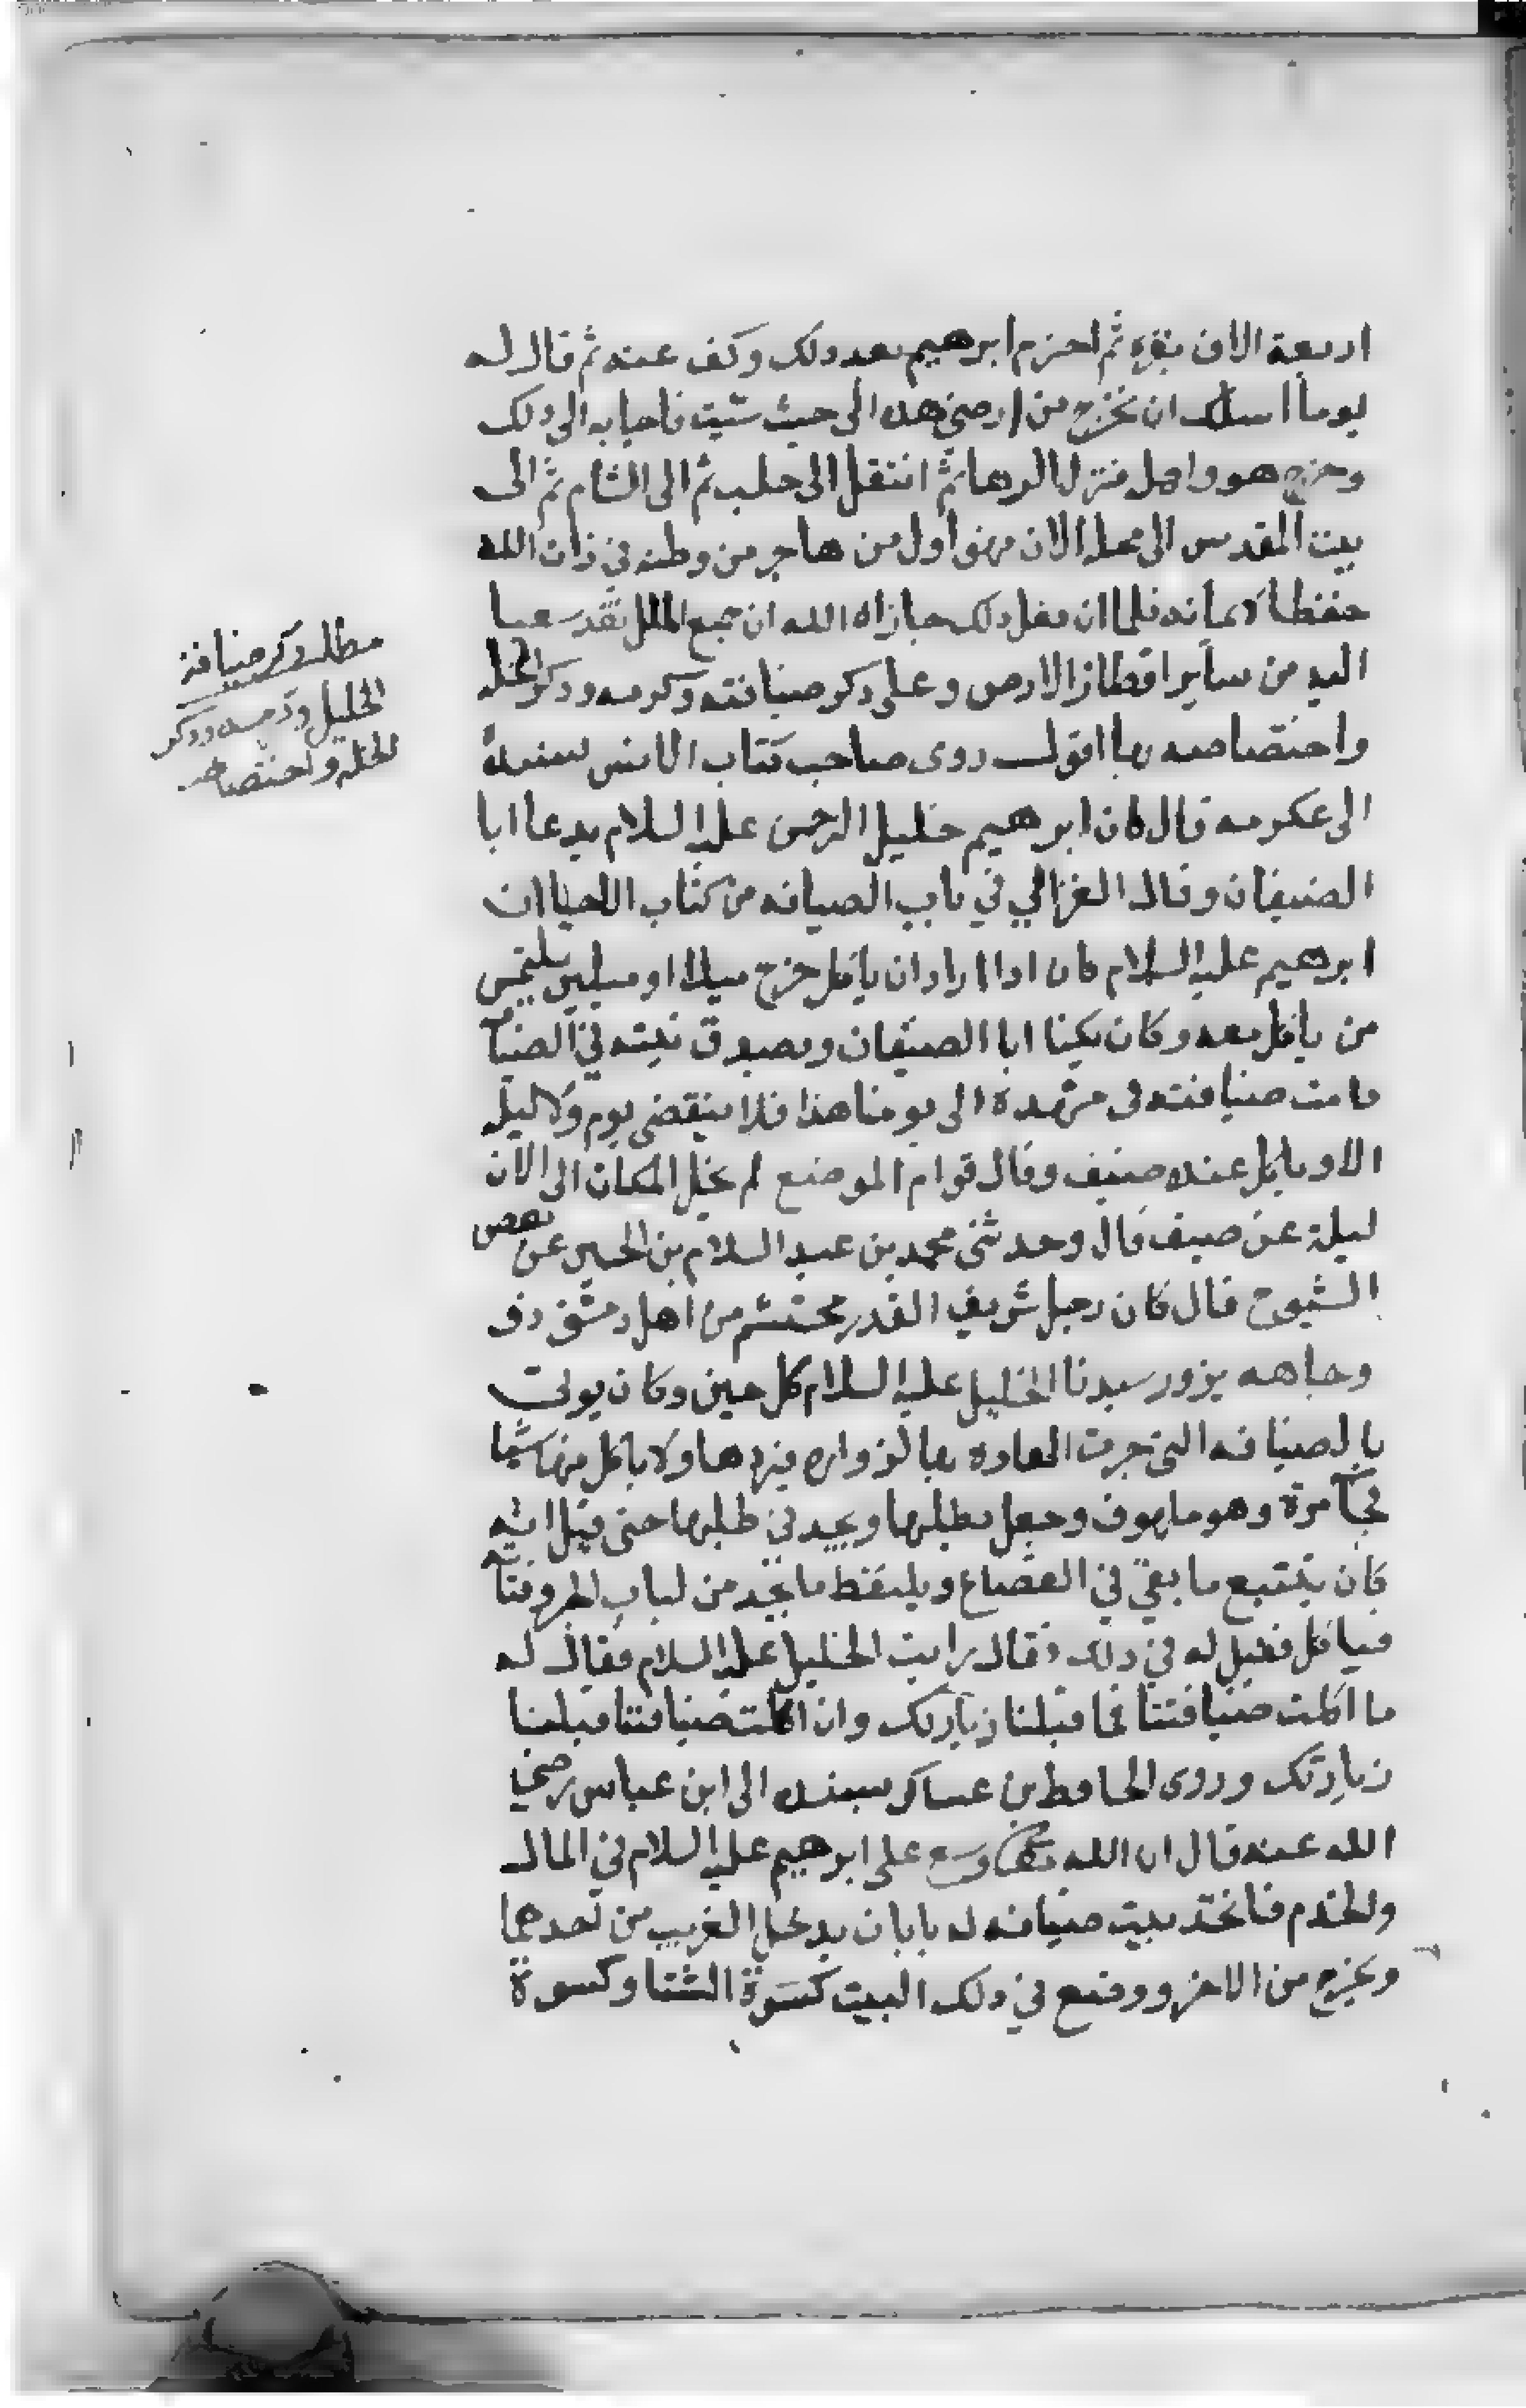 اربعة الاف بقرة ثم احترم ابرهيم بعد دلك وكف عنه ثم قال له
يوما اسلك ان تخرج من ارضي هده الى حيث شيت فاجابه الى دلك
وخرج هو واهله فنزل الرها ثم انتقل الى حلب ثم الى الشام ثم الى
بيت المقدس الى محله الان فهو اول من هاجر من وطنه في ذات الله
حفظا لايمانه فلما ان فعل دلك جازاه الله ان جميع الملل تقد سعيا
اليه من ساير اقطار الارض وعلى دكر ضيافته وكرمه ودكر الخله
واختصاصه بها اقول روى صاحب كتاب الانس بسنده
الى عكرمه قال كان ابرهيم خليل الرحمن عليه السلام يدعا ابا
الضيفان وقال الغزالي في باب الضيافه من كتاب الاحيا ان
ابرهيم عليه السلام كان ادا اراد ان ياكل خرج ميلا او ميلين يلتمس
من ياكل معه وكان يكنا ابا الضيفان وبصدق نيته في الضيا
دامت ضيافته في مشهده الى يومنا هذا فلا ينقضي يوم ولا ليلة
الا وياكل عنده ضيف وقال قوام الموضع لم يخل المكان الى الان
ليلة عن ضيف قال وحدثني محمد بن عبد السلام بن الحسين عن بعض
الشيوخ قال كان رجل شريف القدر محتشم من اهل دمشق دو
وجاهه يزور سيدنا الخليل عليه السلام كل حين وكان يوتى
بالضيافه التي جرت العاده بها لزواره فيردها ولا ياكل منها شيا
فجآ مرة وهو ملهوف وجعل يطلبها ويجد في طلبها حتى قيل انه
كان يتتبع ما بقي في القصاع ويلتقط ما يجد من لباب الخبز وفتات
فياكل فقيل له في دلك فقال رايت الخليل عليه السلام فقال له
ما اكلت ضيافتنا فما قبلنا زيارتك وان اكلت ضيافتنا قبلنا
زيارتك وروى الحافظ بن عساكر بسنده الى ابن عباس رضي
الله عنه قال ان الله تعالى وسع على ابرهيم عليه السلام في المال
والخدم فاتخذ بيت ضيافه له بابان يدخل الغريب من احدهما
ويخرج من الاخر ووضع في دلك البيت كسوة الشتا وكسوة
مطلب دكر ضيافة
الخليل وكرمه ودكر
الخله واختصاصه